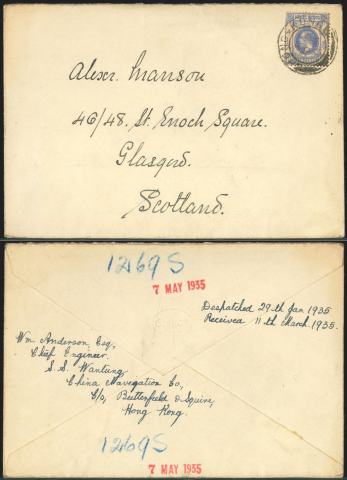 Alexr. Manson
46/48. St. Enoch Square.
Glasgow.
Scotland.
HONG KONG
12169 S
7 MAY 1935
Despatched 29th Jan 1935
Received 11th March 1935.
Wm Anderson, Esq,
Chief Engineer.
S.S. Wantung.
China Navigation Co,
C/o, Butterfield & Squire,
Hong Kong.
1269S
7 MAY 1935